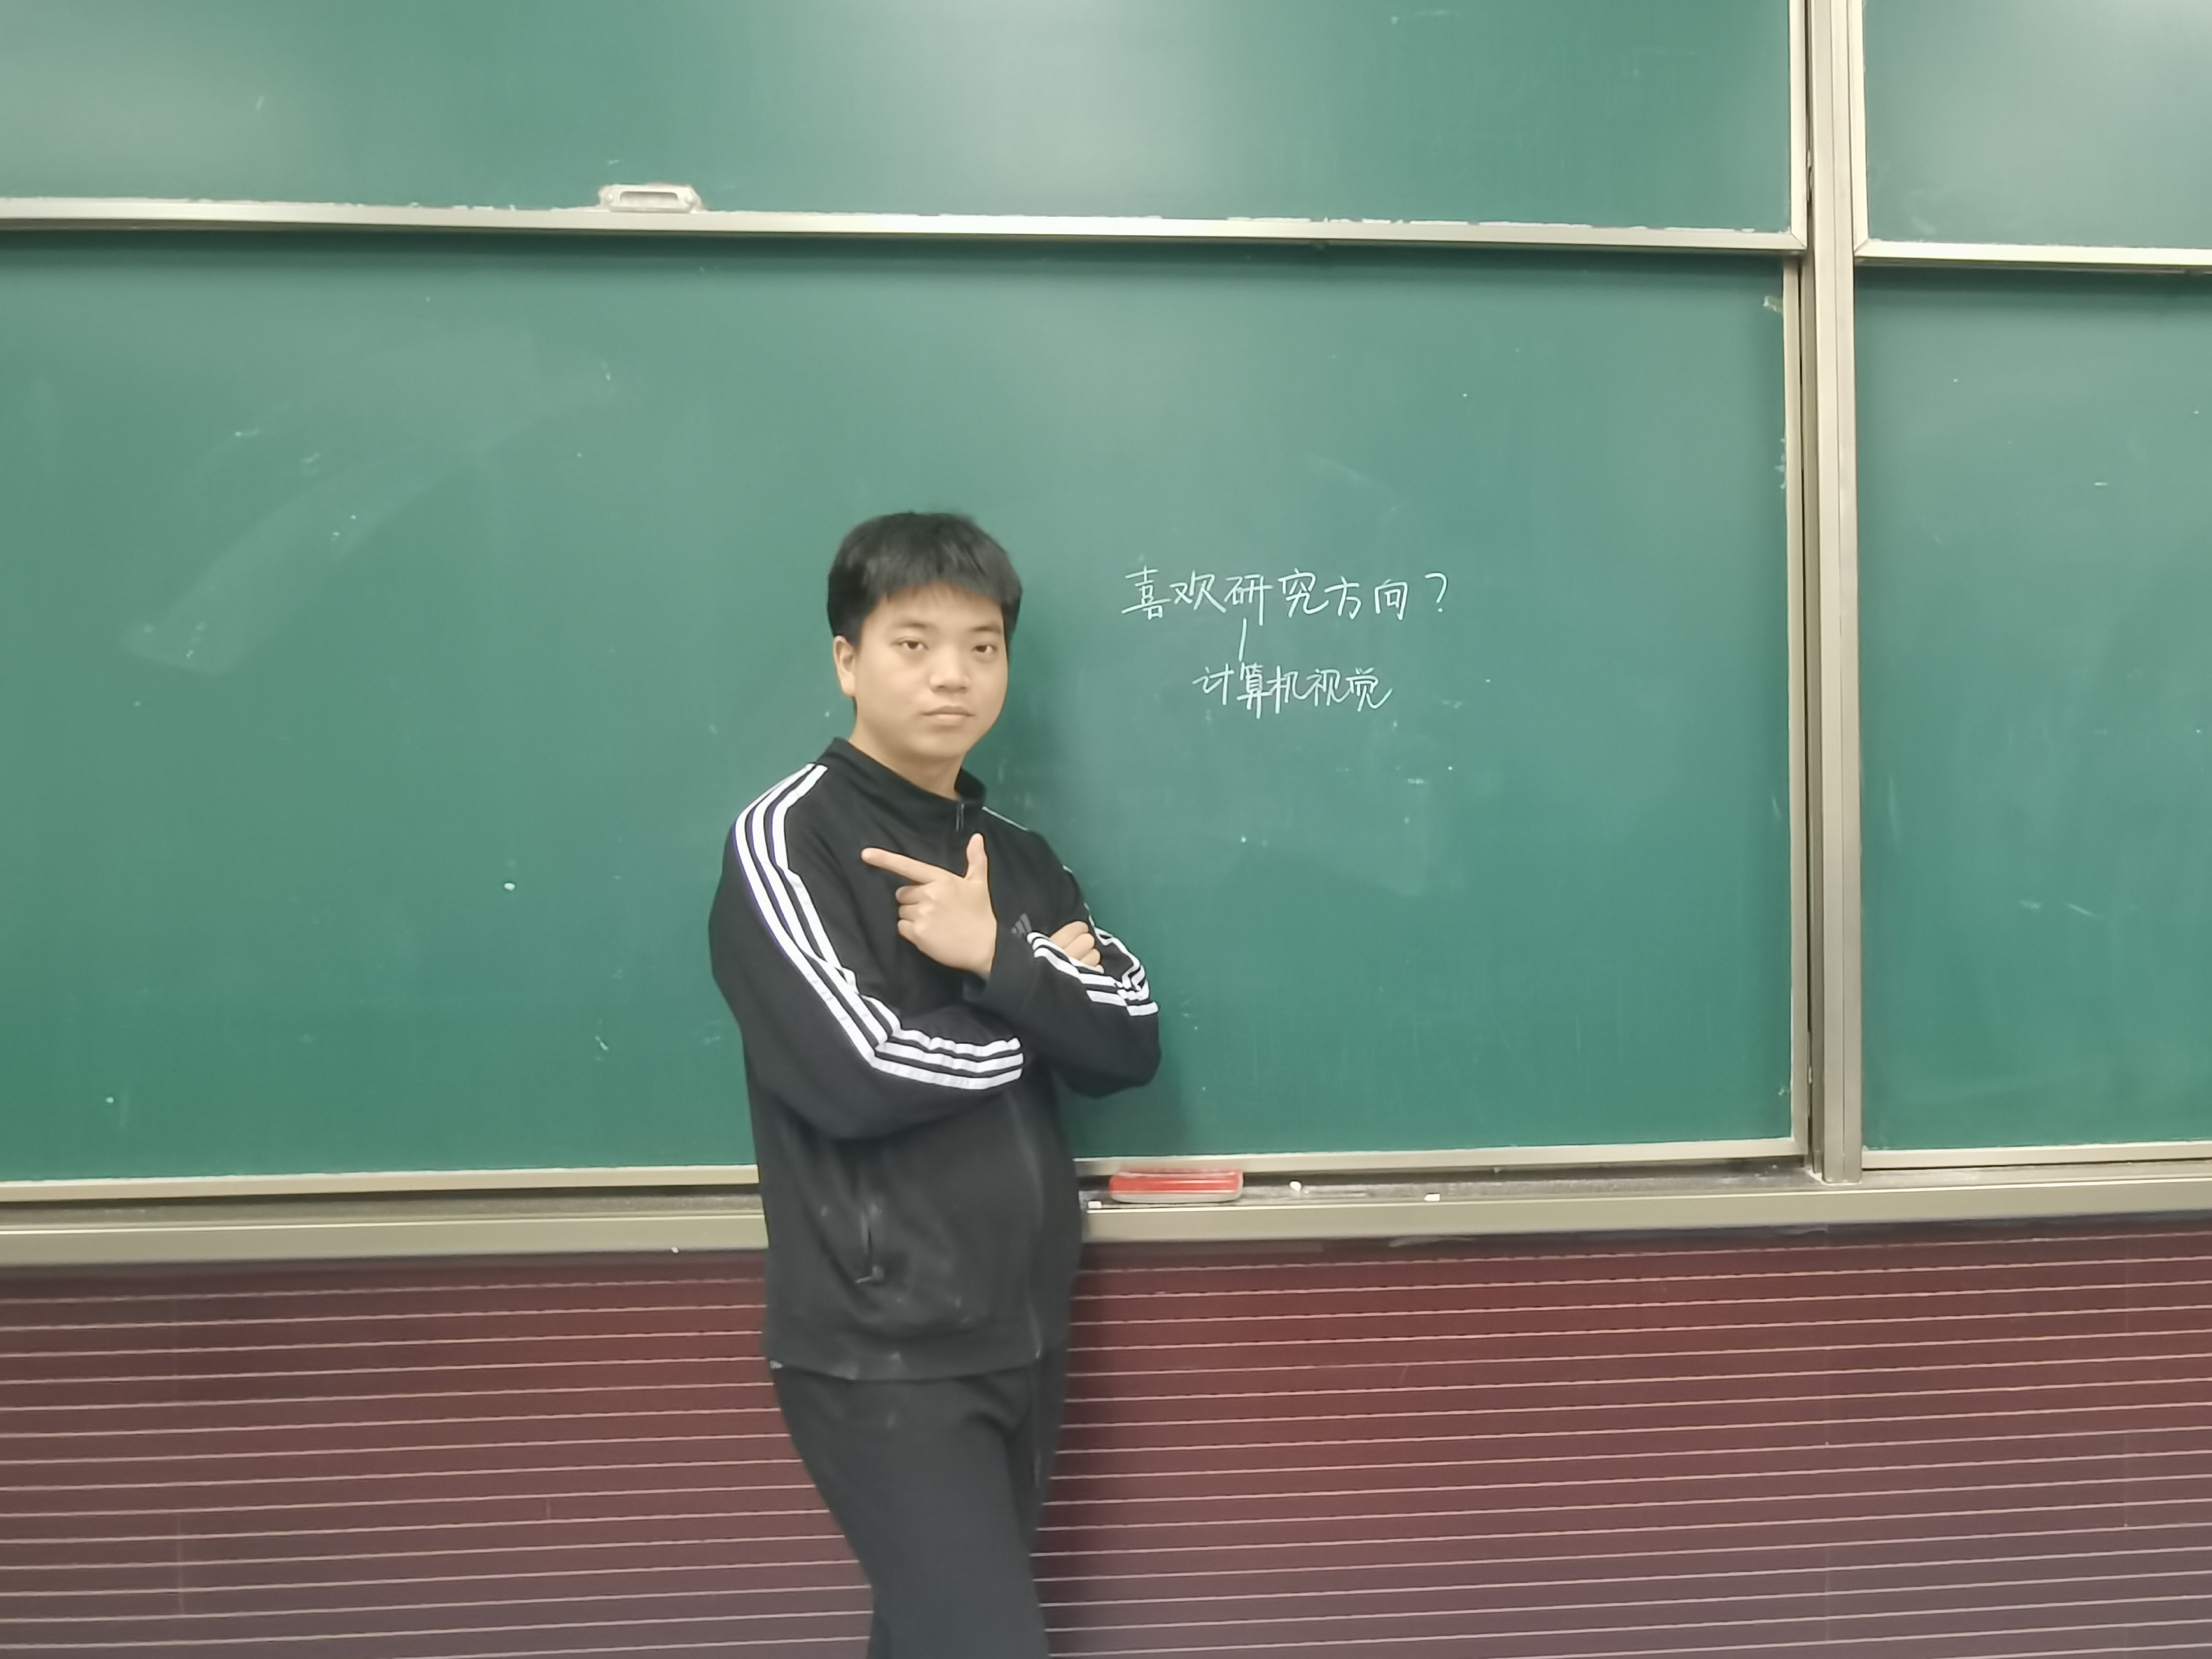 喜欢研究方向？
计算机视觉